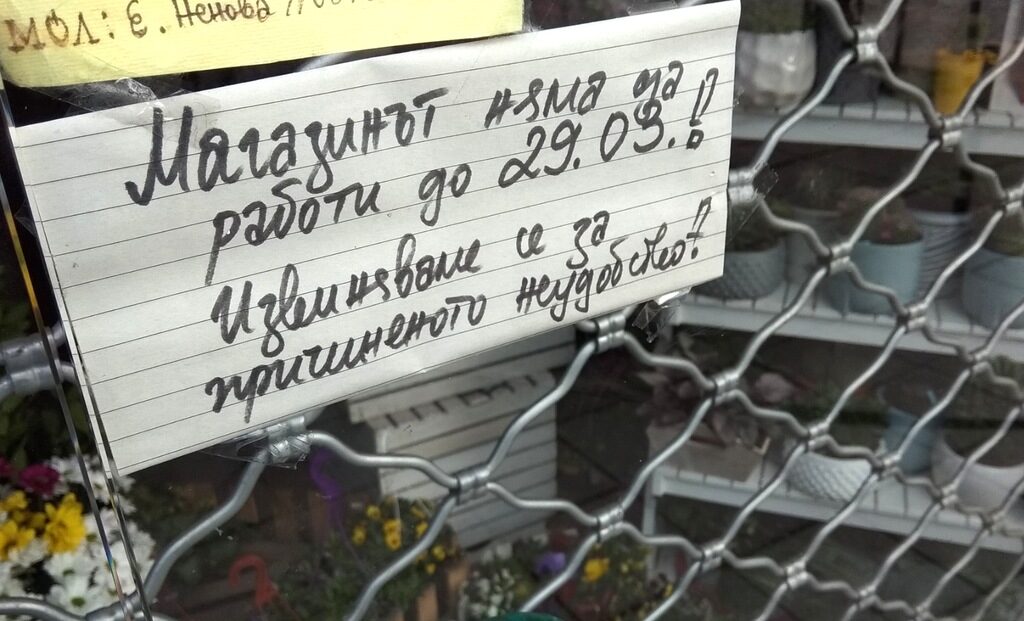 МОЛ: Е. Ненова
Магазинът няма да
работи до 29.03.!!
Извиняваме се за
причиненото неудобство!